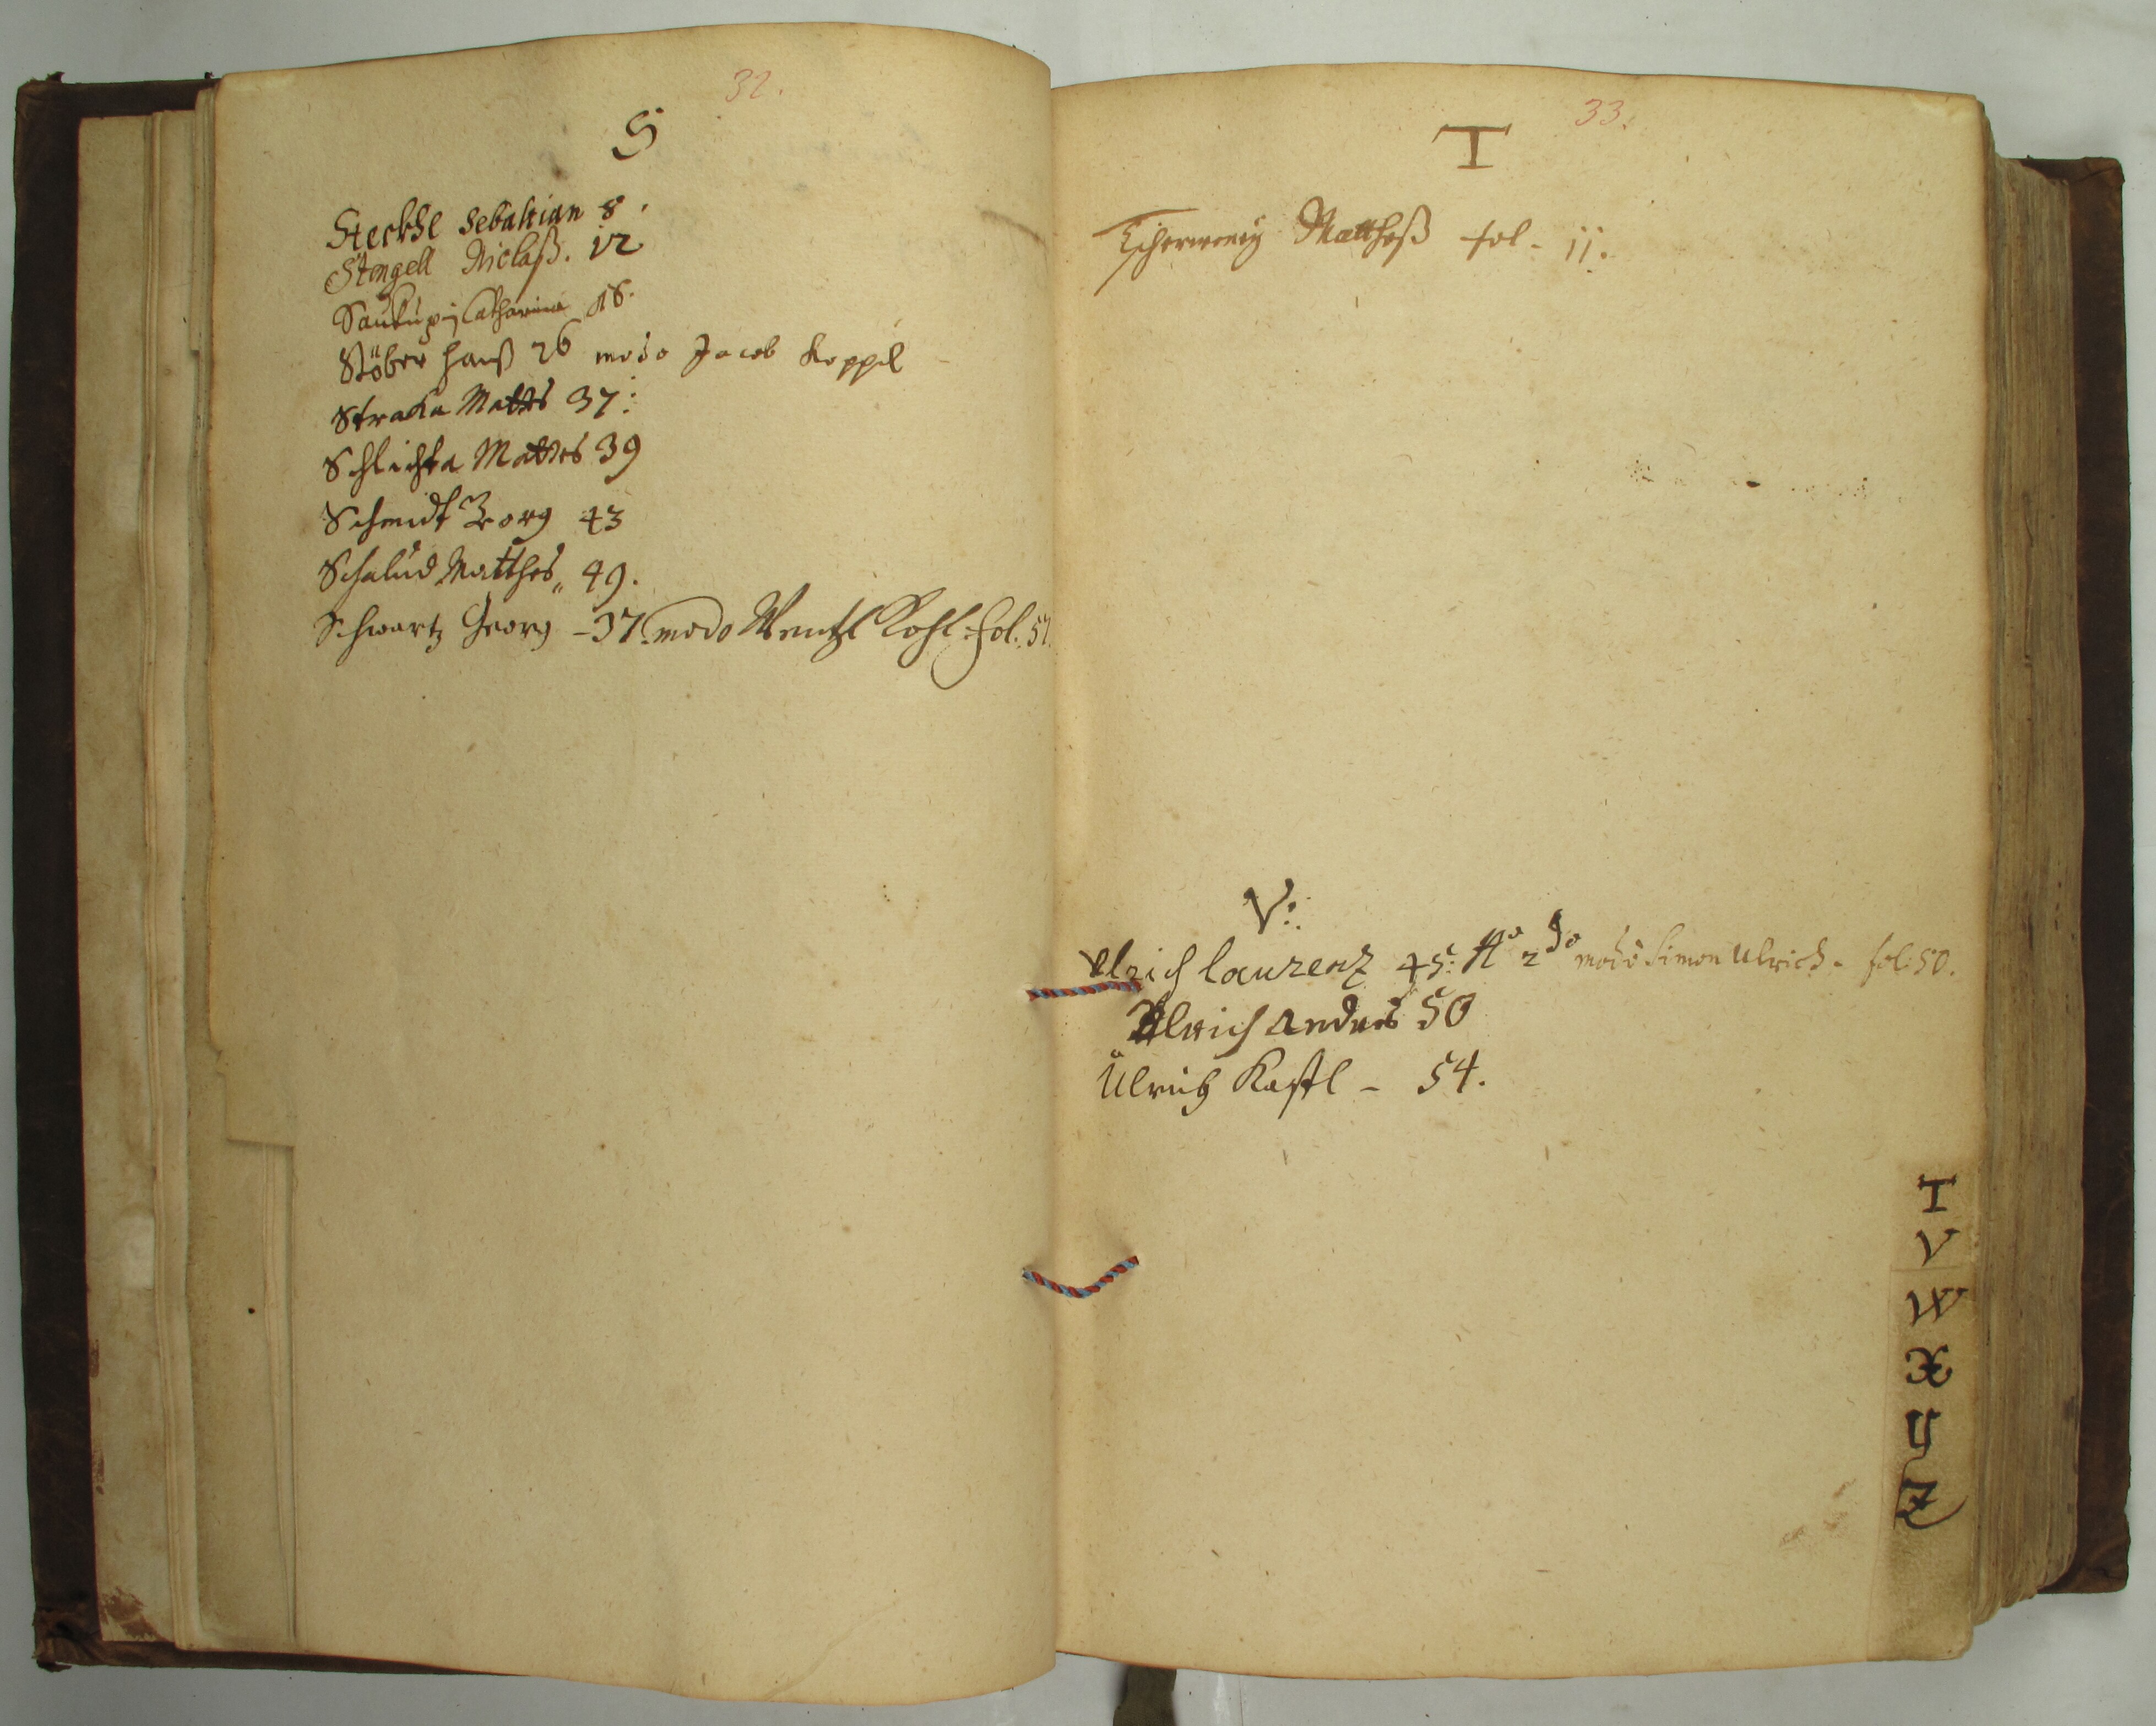 32.
S
Steckhl Sebastian 8.
Stengell Niclaß. 12
Saukup Catharina 16.
Stöber Hanß 26 modo Jacob Koppel
Straka Mattes 37:
Schlichta Mattes 39
Schmidt Georg 43
Schalud Matthes„ 49.
Schwartz Georg – 37. modo Wentzl Kohl: fol. 57.
33.
T
Mattheß fol. 11.
V:
Ulrich Laurenz 45: modo Simon Ulrich. fol: 50.
Ulrich Andres 50
Ulrich Kastl – 54.
T
V
W
X
Y
Z